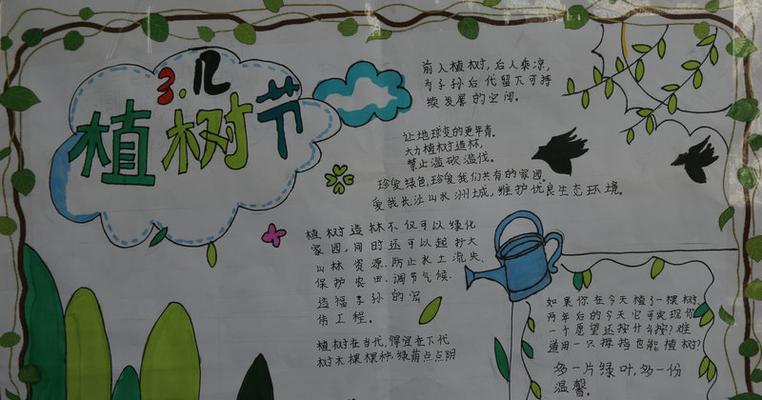 3.12
植树节
前人植树,后人乘凉,
为子孙后代留下可持
续发展的空间。
让地球变的更年青。
大力植树造林,
禁止滥砍滥伐。
珍爱绿色,珍爱我们共有的家园。
爱我长江山水洲城,维护优良生态环境。
植树造林不仅可以绿化
家园,同时还可以起扩大
山林资源、防止水土流失、
保护农田、调节气候、
造福子孙的宏
伟工程。
植树在当代,
树木棵棵种,绿荫点点阴
如果你在今天植了一棵树,
两年后的今天它可实现你
一个愿望还按什么按?难
道用一只拇指也能植树?
多一片绿叶,多一份
温馨。